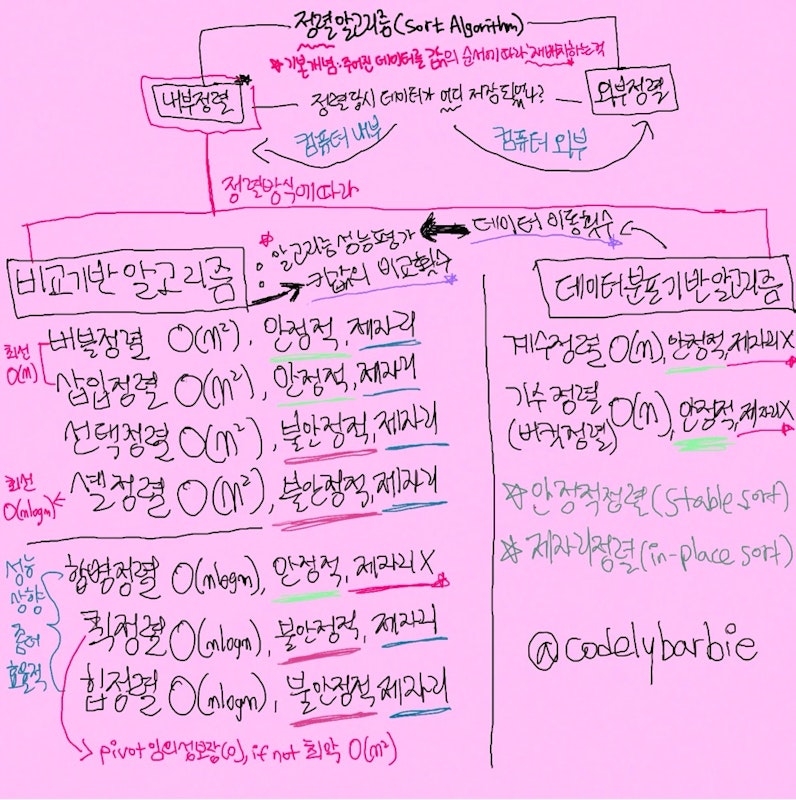 정렬 알고리즘(sort Algorithm)
☆기본개념:주어진 데이터를 값의 순서에 따라 재배치하는것
내부정렬
정렬 당시 데이터가 어디 저장되었나?
외부정렬
컴퓨터 내부
컴퓨터 외부
정렬방식에 따라
데이터 이동횟수
: 알고리즘 성능평가
키값의 비교횟수
비교기반 알고리즘
최선 O(n)
버블정렬 O(n²), 안정적, 제자리
삽입정렬 O(n²), 안정적, 제자리
선택정렬 O(n²), 불안정적, 제자리
최선 O(nlogn)
셸정렬 O(n²), 불안정적, 제자리
성능
상향
좀더
효율적
합병정렬 O(nlogn), 안정적, 제자리X
퀵정렬 O(nlogn), 불안정적, 제자리
힙정렬 O(nlogn), 불안정적 제자리
pivot 임의성보장(o), if not 최악 O(n²)
데이터분포기반 알고리즘
계수정렬 O(n), 안정적, 제자리X
기수정렬
(버킷정렬) O(n), 안정적, 제자리X
☆안정적정렬(stable sort)
☆제자리정렬(in-place sort)
@codelybarbie